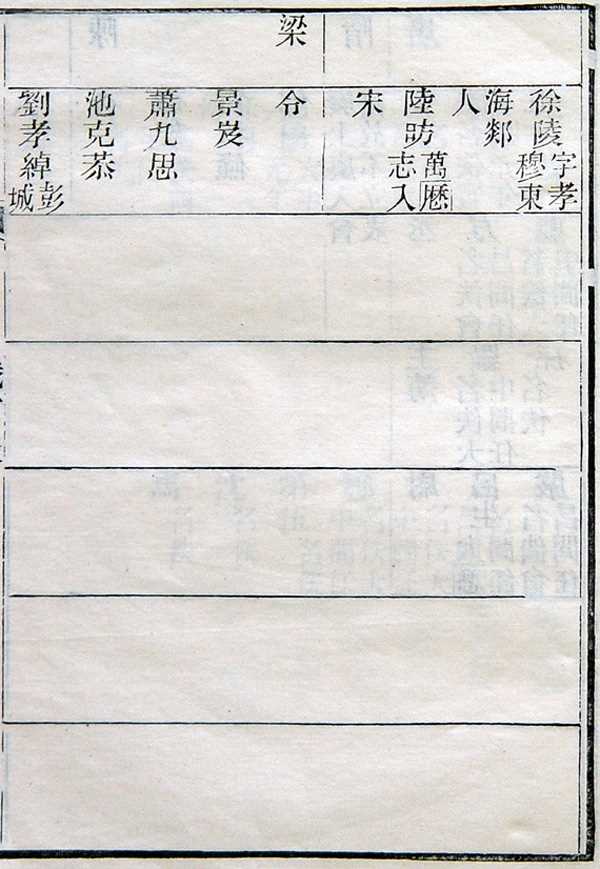 徐陵字孝穆東
海郯
人
陸昉萬曆志入
宋
梁
令
景岌
蕭九思
池克恭
劉孝綽彭城